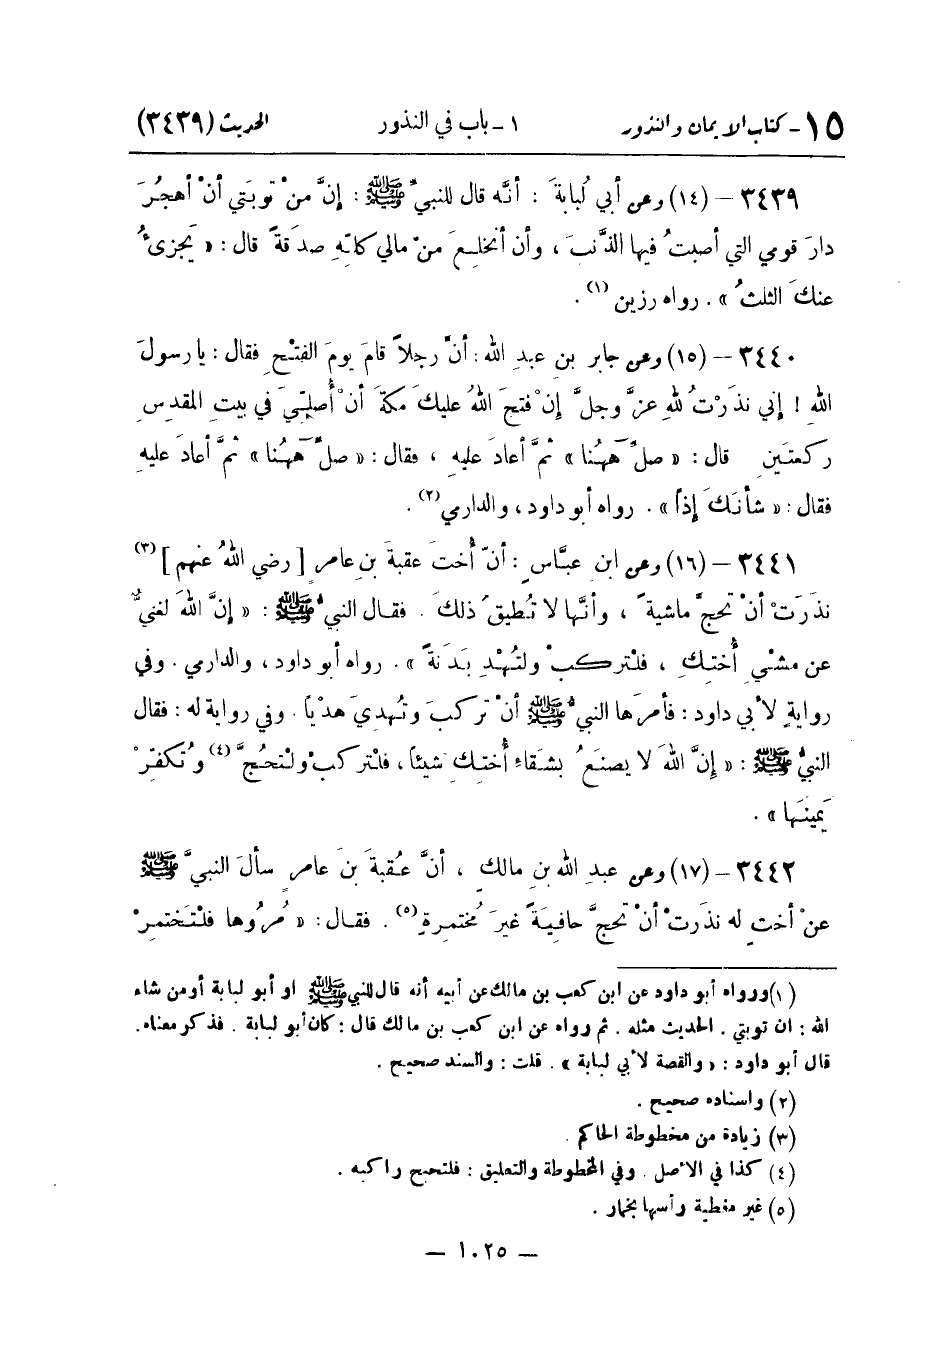 ١٥ - كتاب الايمان والنذور ١ - باب في النذور الحديث (٣٤٣٩)
٣٤٣٩ - (١٤) وعن أبي لُبابةَ : أنَّه قال للنبيِّ ﷺ : إنَّ منْ توبَتي أنْ أهجُرَ
دارَ قومي التي أصبتُ فيها الذَّنبَ ، وأن أنخلِعَ منْ مالي كلِّهِ صدَقةً قال : « يَجزىءُ
عنكَ الثلثُ » . رواه رزين (١) .
٣٤٤٠ - (١٥) وعن جابر بن عبد الله : أنَّ رجلاً قامَ يومَ الفتْحِ فقال : يا رسولَ
اللهِ ! إني نذَرْتُ للهِ عزَّ وجلَّ إنْ فتحَ اللهُ عليكَ مكةَ أنْ أُصلِّيَ في بيتِ المقدسِ
ركعتَينِ قال : « صلِّ ههُنا » ثمَّ أعادَ عليهِ ، فقال : « صلِّ ههُنا » ثمَّ أعادَ عليهِ
فقال : « شأنَكَ إذاً » . رواه أبو داود ، والدارمي (٢) .
٣٤٤١ - (١٦) وعن ابن عبَّاسٍ : أنّ أُختَ عقبةَ بنِ عامرٍ [ رضي اللهُ عنهم ] (٣)
نذَرَتْ أنْ تحجَّ ماشيةً ، وأنَّها لا تُطيقُ ذلكَ . فقال النبيُّ ﷺ : « إنَّ اللهَ لغنيٌّ
عن مشْيِ أُختِكِ ، فلْتركبْ ولتُهْدِ بَدَنةً » . رواه أبو داود ، والدارمي . وفي
روايةٍ لأبي داود : فأمرَها النبيُّ ﷺ أنْ تركبَ وتُهديَ هدْياً . وفي رواية له : فقال
النبيُّ ﷺ : « إنَّ اللهَ لا يصنَعُ بشَقاءِ أُختِكِ شيئاً ، فلْتركبْ ولْتحُجَّ (٤) وتُكفِّرْ
يَمينَها » .
٣٤٤٢ - (١٧) وعن عبدِ الله بنِ مالكٍ ، أنَّ عُقبةَ بنَ عامرٍ سألَ النبيَّ ﷺ
عنْ أختٍ له نذَرتْ أنْ تحجَّ حافيَةً غيرَ مُختمِرةٍ (٥) . فقال : « مُروُها فلْتَختمِرْ
(١) ورواه أبو داود عن ابن كعب بن مالك عن أبيه أنه قال للنبي ﷺ او أبو لبابة أو من شاء
الله : ان توبتي . الحديث مثله . ثم رواه عن ابن كعب بن مالك قال : كان أبو لبابة . فذكر معناه .
قال أبو داود : « والقصة لأبي لبابة » . قلت : والسند صحيح .
(٢) واسناده صحيح .
(٣) زيادة من مخطوطة الحاكم .
(٤) كذا في الأصل . وفي المخطوطة والتعليق : فلتحج راكبه .
(٥) غير مغطية رأسها بخمار .
— ١٠٢٥ —